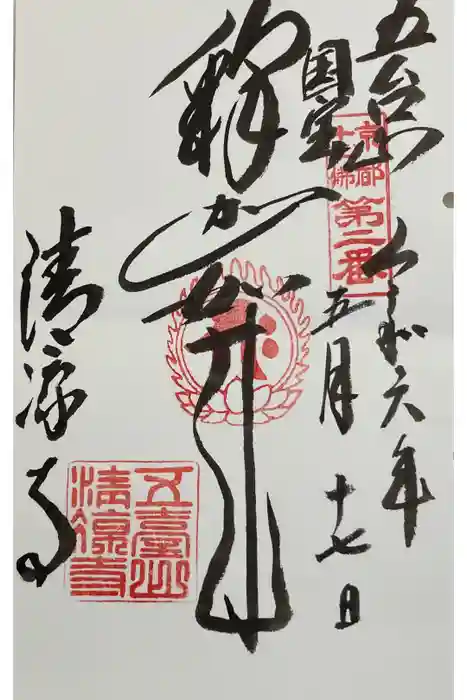 五台山
令和六年
国宝
五月
十七日
釈迦
清凉寺
京都
十三佛
第二番
五臺山
清凉寺